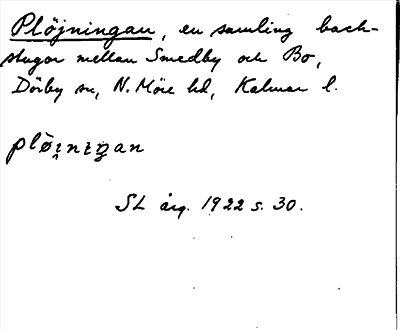 Plöjningan, en samling back-
stugor mellan Smedby och Bo,
Dörby sn, N. Möre hd, Kalmar l.
plöi̯niŋan
SL årg. 1922 s. 30.